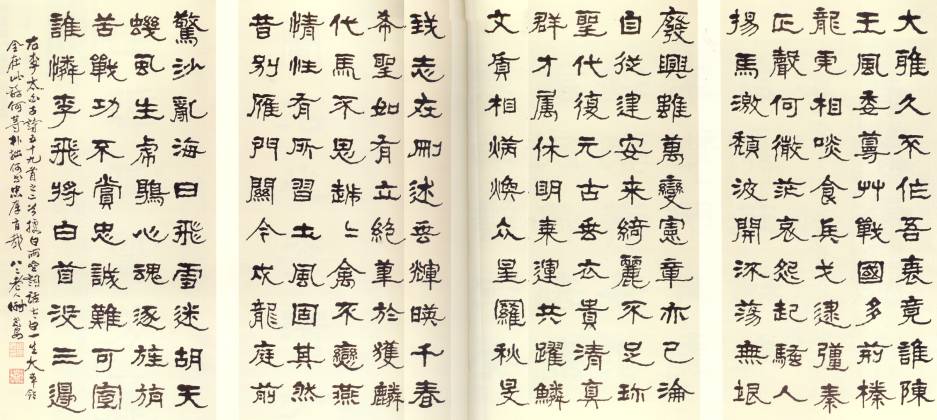 大雅久不作吾衰竟誰陳
王風委蔓艸戰國多荊榛
龍虎相啖食兵戈逮彊秦
正聲何微茫哀怨起騷人
揚馬激頹波開流蕩無垠
廢興雖萬變憲章亦已淪
自從建安來綺麗不足珍
聖代復元古垂衣貴清真
群才屬休明乘運共躍鱗
文質相炳煥眾星羅秋旻
我志在刪述垂輝暎千春
希聖如有立絕筆於獲麟
代馬不思越〻禽不戀燕
情性有所習土風固其然
昔別雁門關今戍龍庭前
驚沙亂海日飛雪迷胡天
蟣虱生虎鶡心魂逐旌旃
苦戰功不賞忠誠難可宣
誰憐李飛將白首沒三邊
右李太白古詩五十九首之二白雨堂詩話白一生大本領
全在此何等朴拙何忠厚八二老人